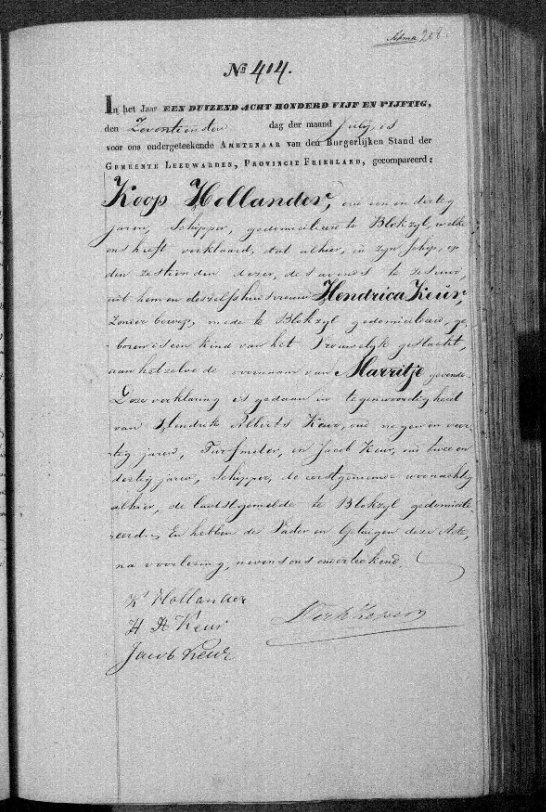 208.
No 414.
In het Jaar EEN DUIZEND ACHT HONDERD VIJF EN VIJFTIG,
den Zeventienden dag der maand Julij
voor ons ondergeteekende AMBTENAAR van den Burgerlijken Stand der
GEMEENTE LEEUWARDEN, PROVINCIE FRIESLAND, gecompareerd:
Koop Hollander, oud een en dertig
jaren, Schipper, gedomicilieerd te Blokzyl, welke
ons heeft verklaard, dat alhier, in zyn schip, op
den zestienden dezer, des avonds te zes ure,
uit hem en deszelfs huisvrouw Hendrica Keur,
zonder beroep, mede te Blokzyl gedomicilieerd, ge-
boren is een kind van het Vrouwelyk geslacht,
aan hetzelve de voornaam van Marritje gevende.
Deze verklaring is gedaan in tegenwoordigheid
van Hendrik Alberts Keur, oud negen en veer-
tig jaren, Turfmeter, en Jacob Keur, oud twee en
dertig jaren, Schipper, de eerstgenoemde woonachtig
alhier, de laatstgemelde te Blokzyl gedomicili-
eerd; En hebben de Vader en Getuigen deze Acte,
na voorlezing, nevens ons onderteekend.
Ks Hollander
H A Keur
Jacob Keur